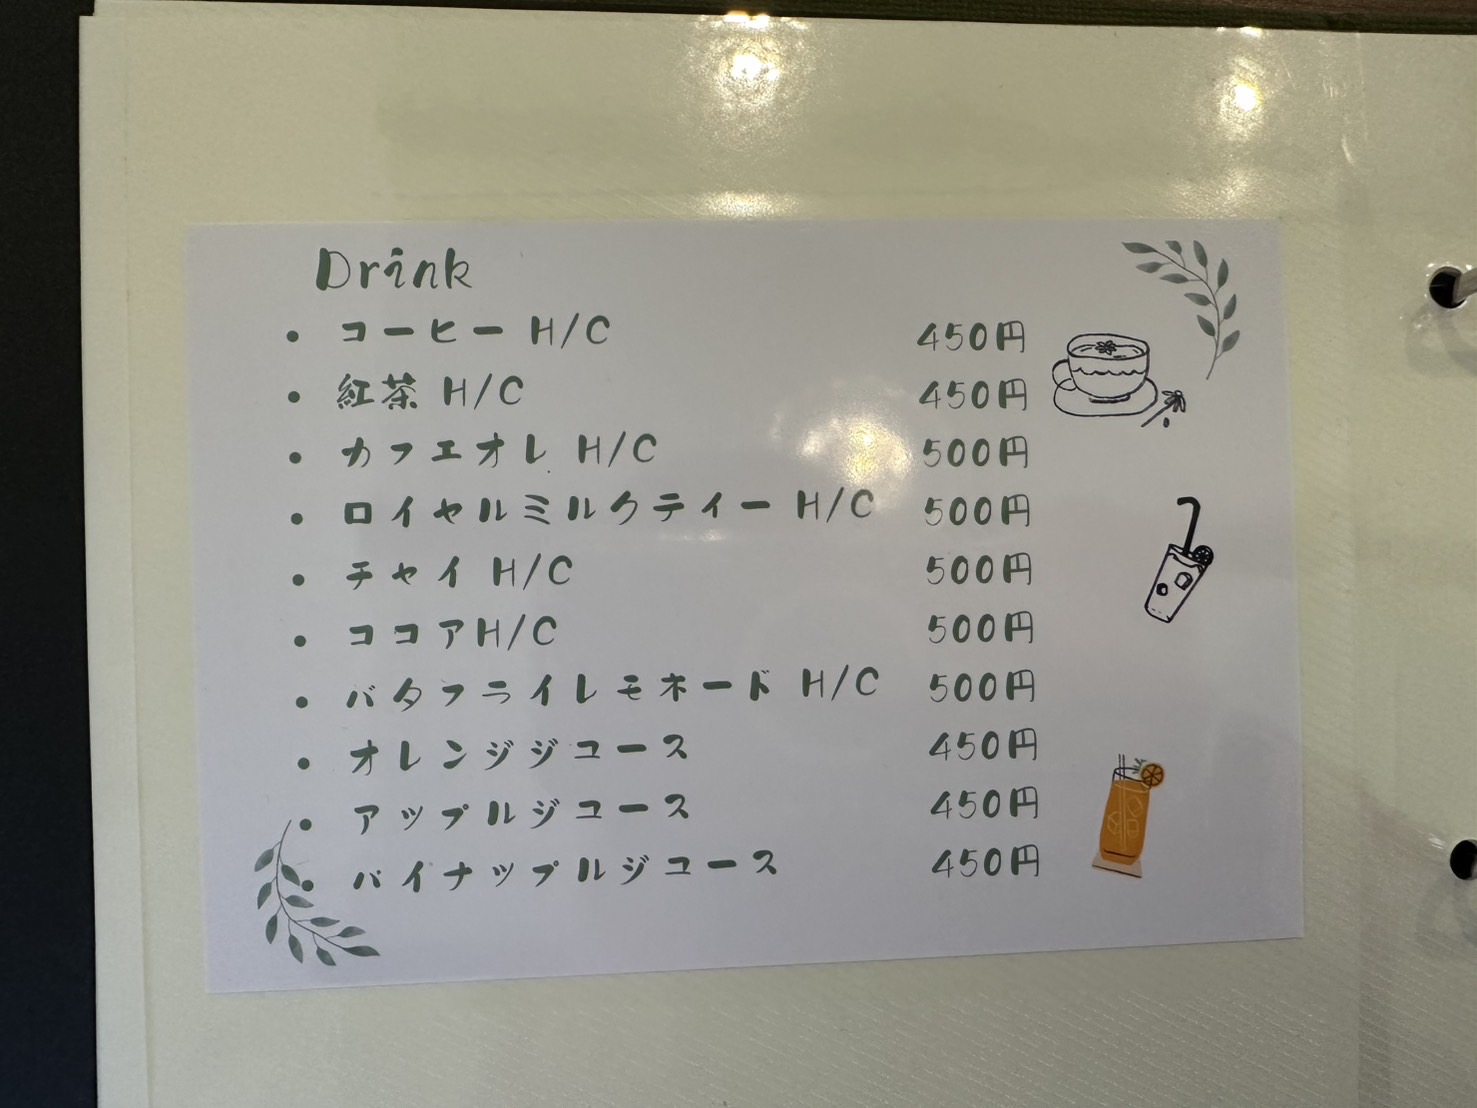 Drink
・コーヒー H/C 450円
・紅茶 H/C 450円
・カフェオレ H/C 500円
・ロイヤルミルクティー H/C 500円
・チャイ H/C 500円
・ココアH/C 500円
・バタフライレモネード H/C 500円
・オレンジジュース 450円
・アップルジュース 450円
・パイナップルジュース 450円